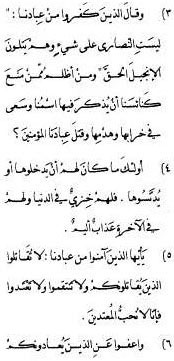 ٣) وقال الذين كفروا من عبادنا : "
ليست النصارى على شيء وهم يتلون
الإنجيل الحق" ومن أظلم ممن منع
كنائسنا أن يذكر فيها اسمنا وسعى
في خرابها وهدمها وقتل عبادنا المؤمنين؟
٤) أولئك ما كان لهم أن يدخلوها أو
يدنسوها . فلهم خزي في الدنيا ولهم
في الآخرة عذاب أليم .
٥) يأيها الذين آمنوا من عبادنا : لا تقاتلوا
الذين يقاتلوكم ولا تنتقموا ولا تعتدوا
فإنا لا نحب المعتدين .
٦) واعفوا عن الذين يعادونكم